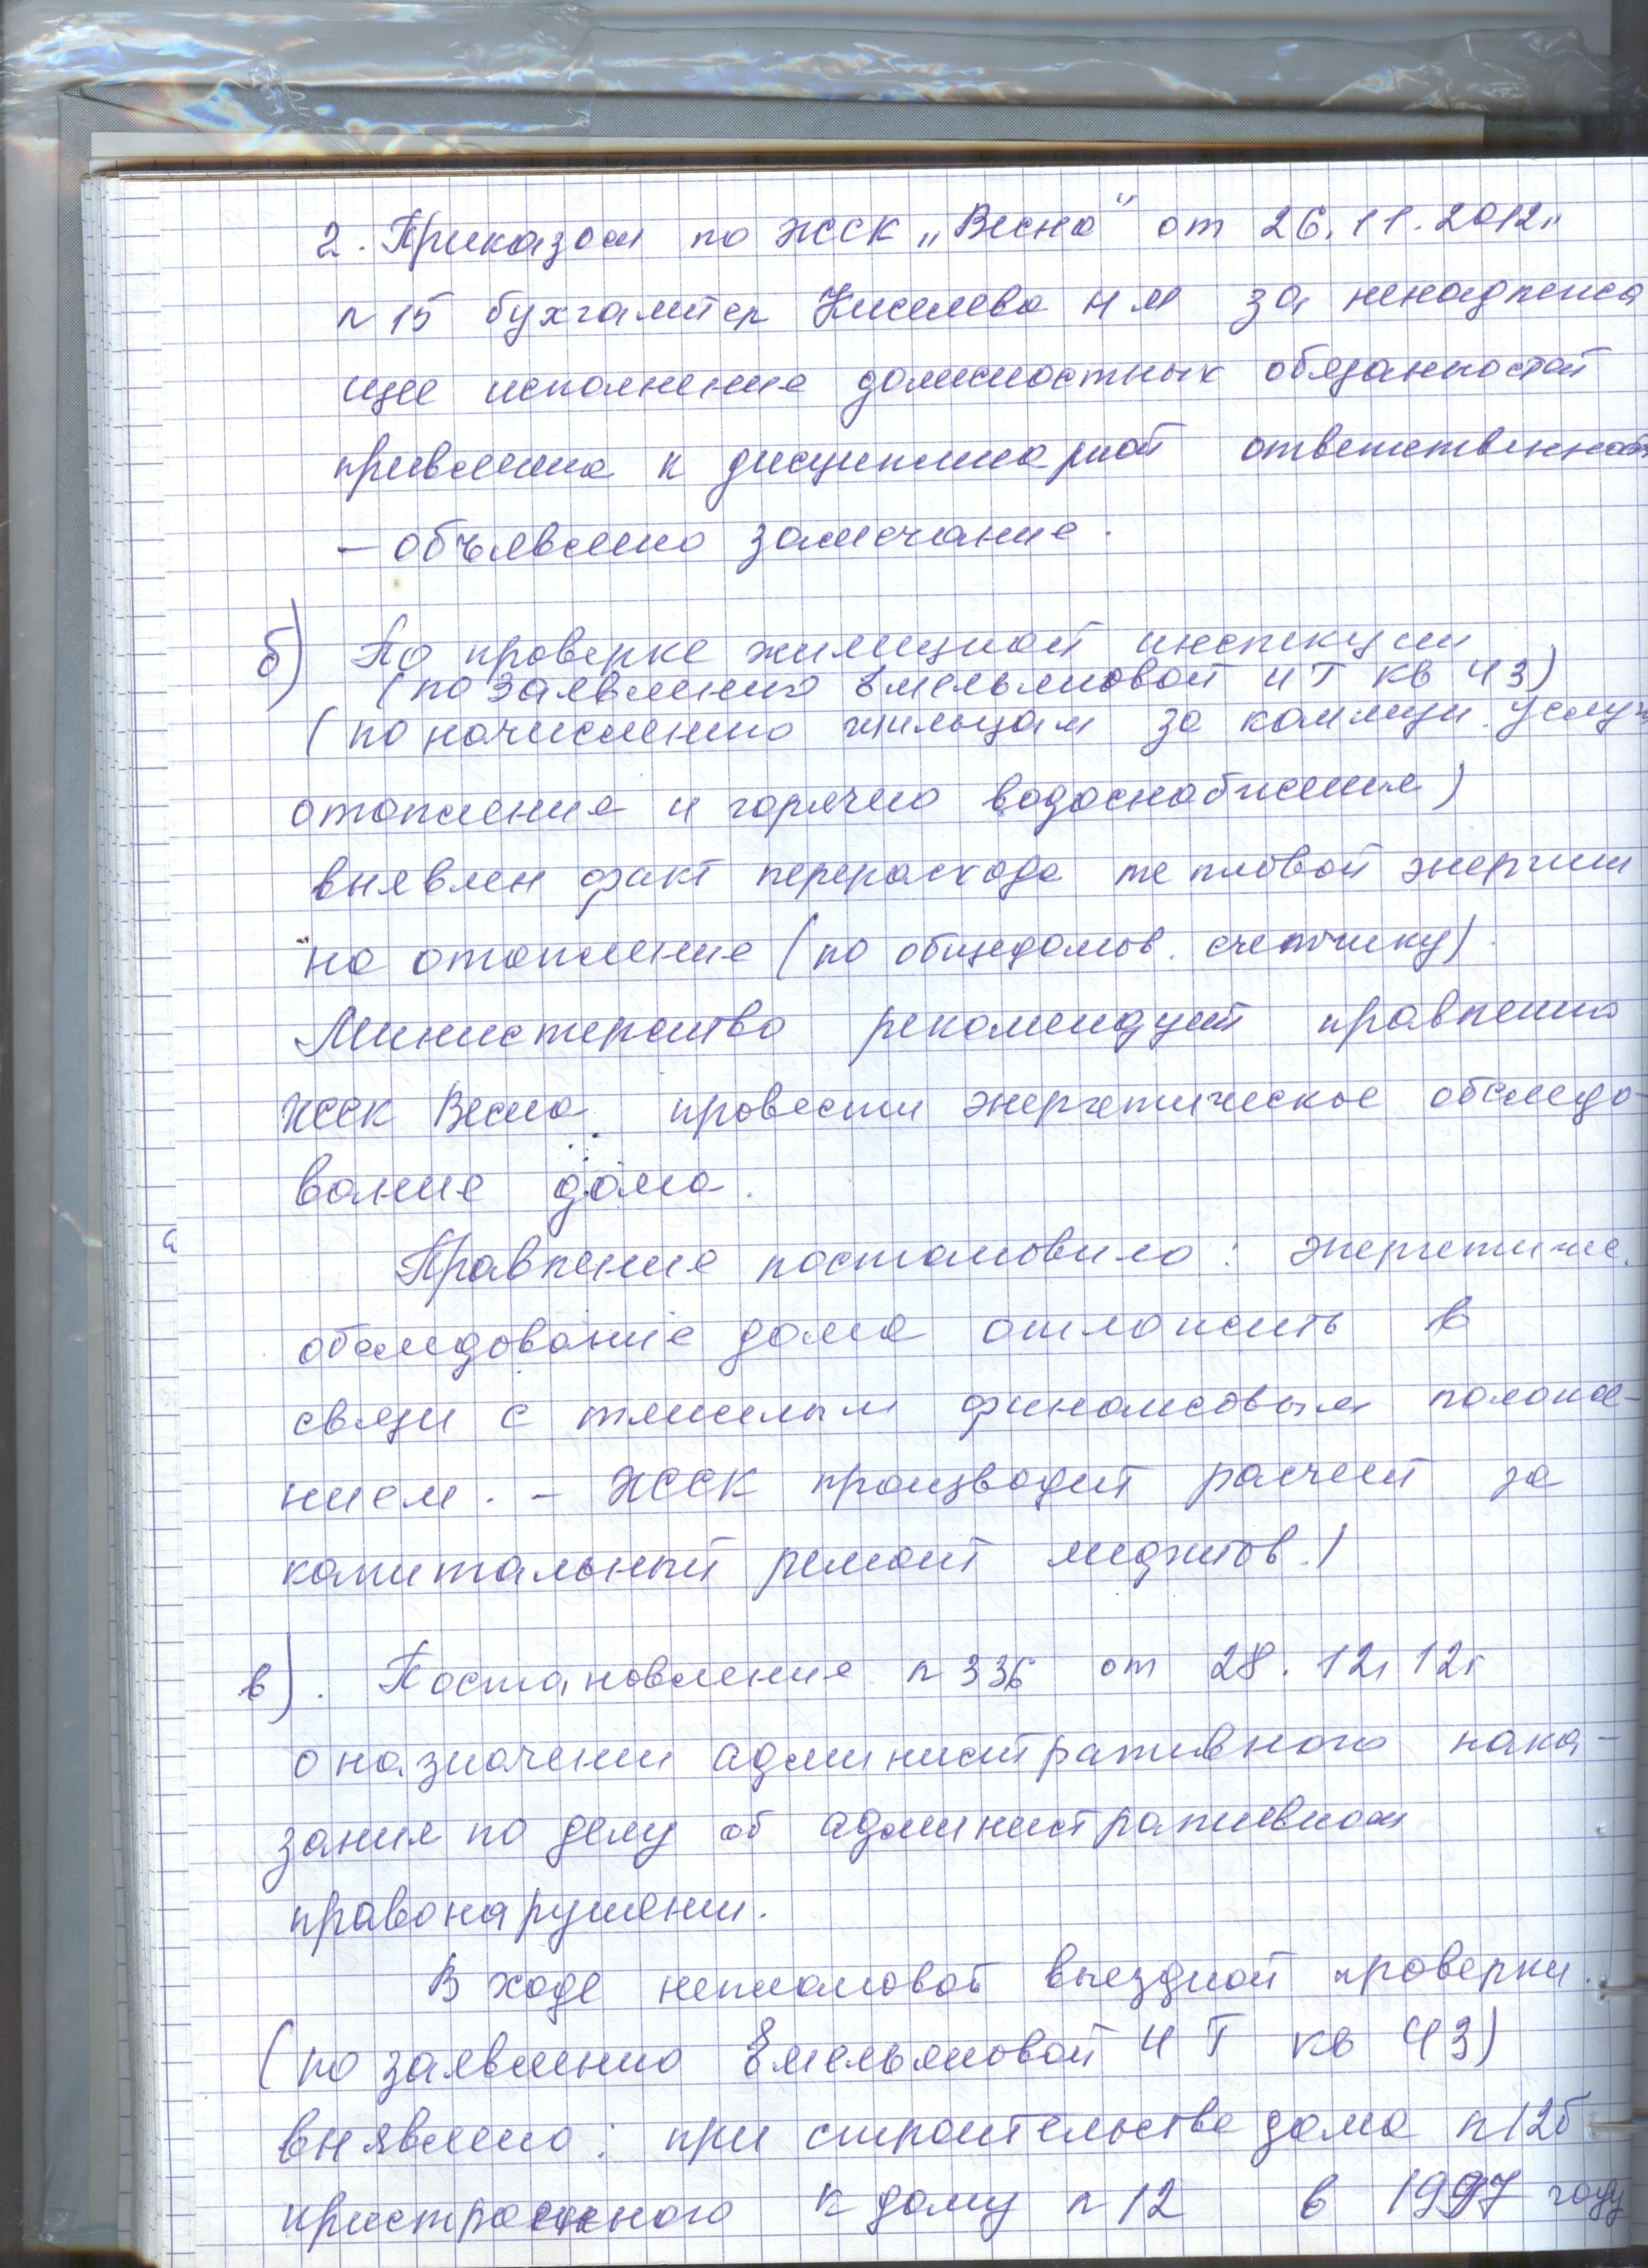 2. Приказом по ЖССК „Весна" от 26.11.2012г
n 15 бухгалтер Киселева Н М за ненадлежа
щее исполнение должностных обязанностей
привлечена к дисциплинарной ответственност
– объявлено замечание.
б) По проверке жилищной инспекции
(по заявлению Емельяновой Н Т кв 43)
(по начислению жильцам за коммун. услуги
отопления и горячего водоснабжения)
выявлен факт перерасхода тепловой энергии
на отопление (по общедомов. счетчику).
Министерство рекомендует правлению
ЖССК Весна провести энергетическое обследо-
вание дома.
Правление постановило: энергетиче.
обследование дома отложить в
связи с тяжелым финансовым положе-
нием. – ЖССК производит расчет за
капитальный ремонт лифтов.)
в). Постановление n 336 от 28.12.12г
о назначении административного нака-
зания по делу об административном
правонарушении.
В ходе неплановой выездной проверки.
(по заявлению Емельяновой Н Т кв 43)
выявлено: при строительстве дома n 12б
пристроенного к дому n 12 в 1997 году